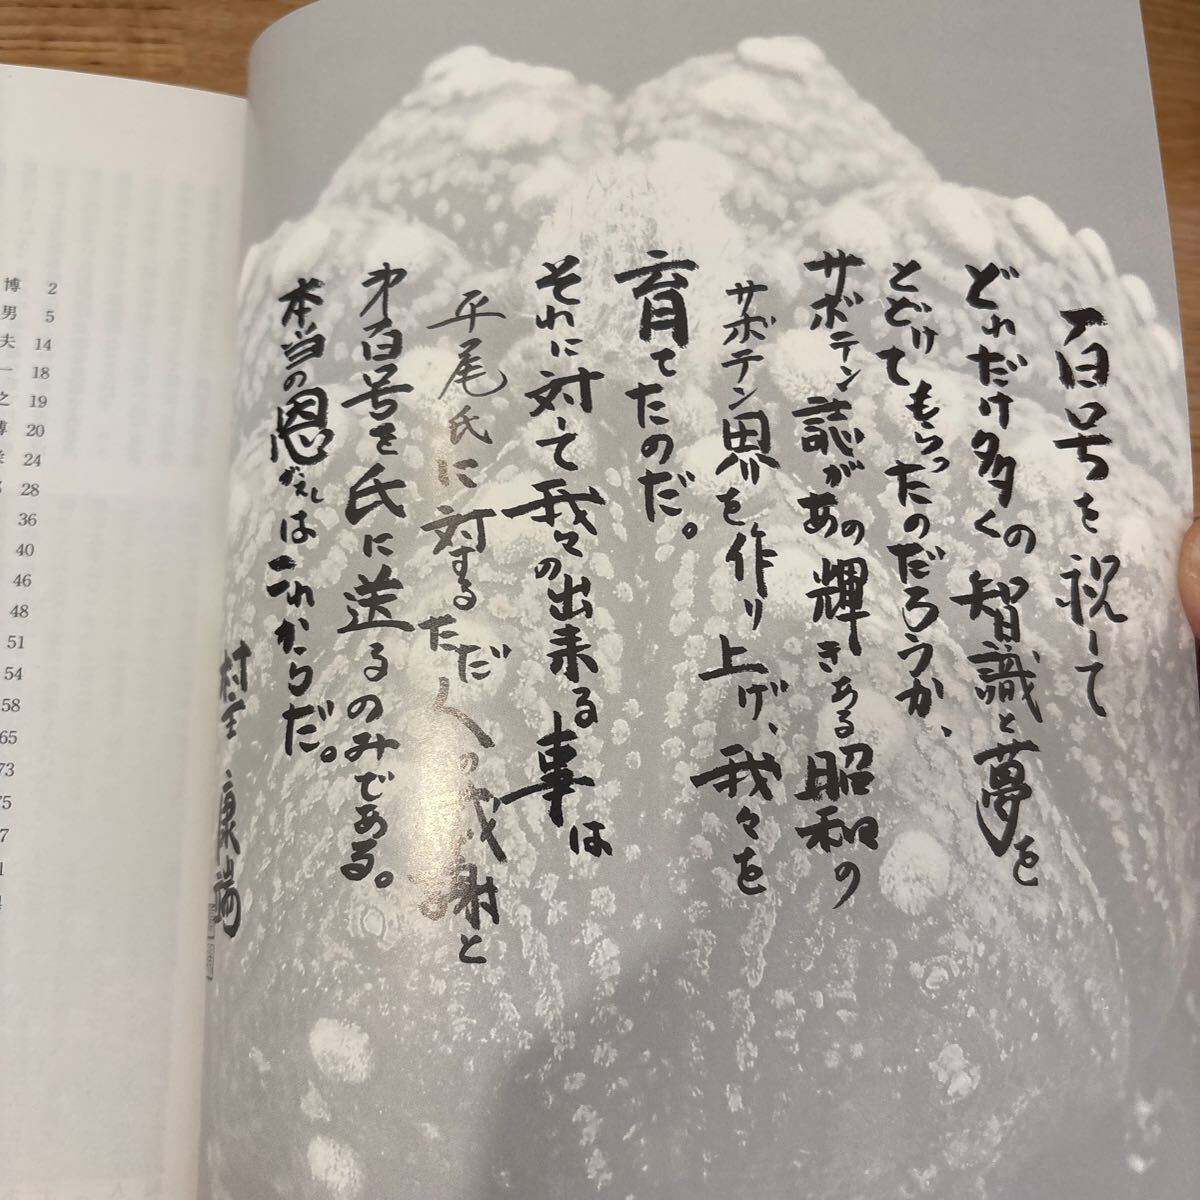 百号を祝して
どれだけ多くの智識と夢を
とどけてもらったのだろうか、
サボテン誌があの輝きある昭和の
サボテン界を作り上げ、我々を
育てたのだ。
それに対して我々の出来る事は
平尾氏に対するただ人の感謝と
才百号を氏に送るのみである。
本当の恩がえしはこれからだ。
村主康瑞
博 2
男 5
夫 14
一 18
之 19
博 20
24
28
36
40
46
48
51
54
58
65
73
75